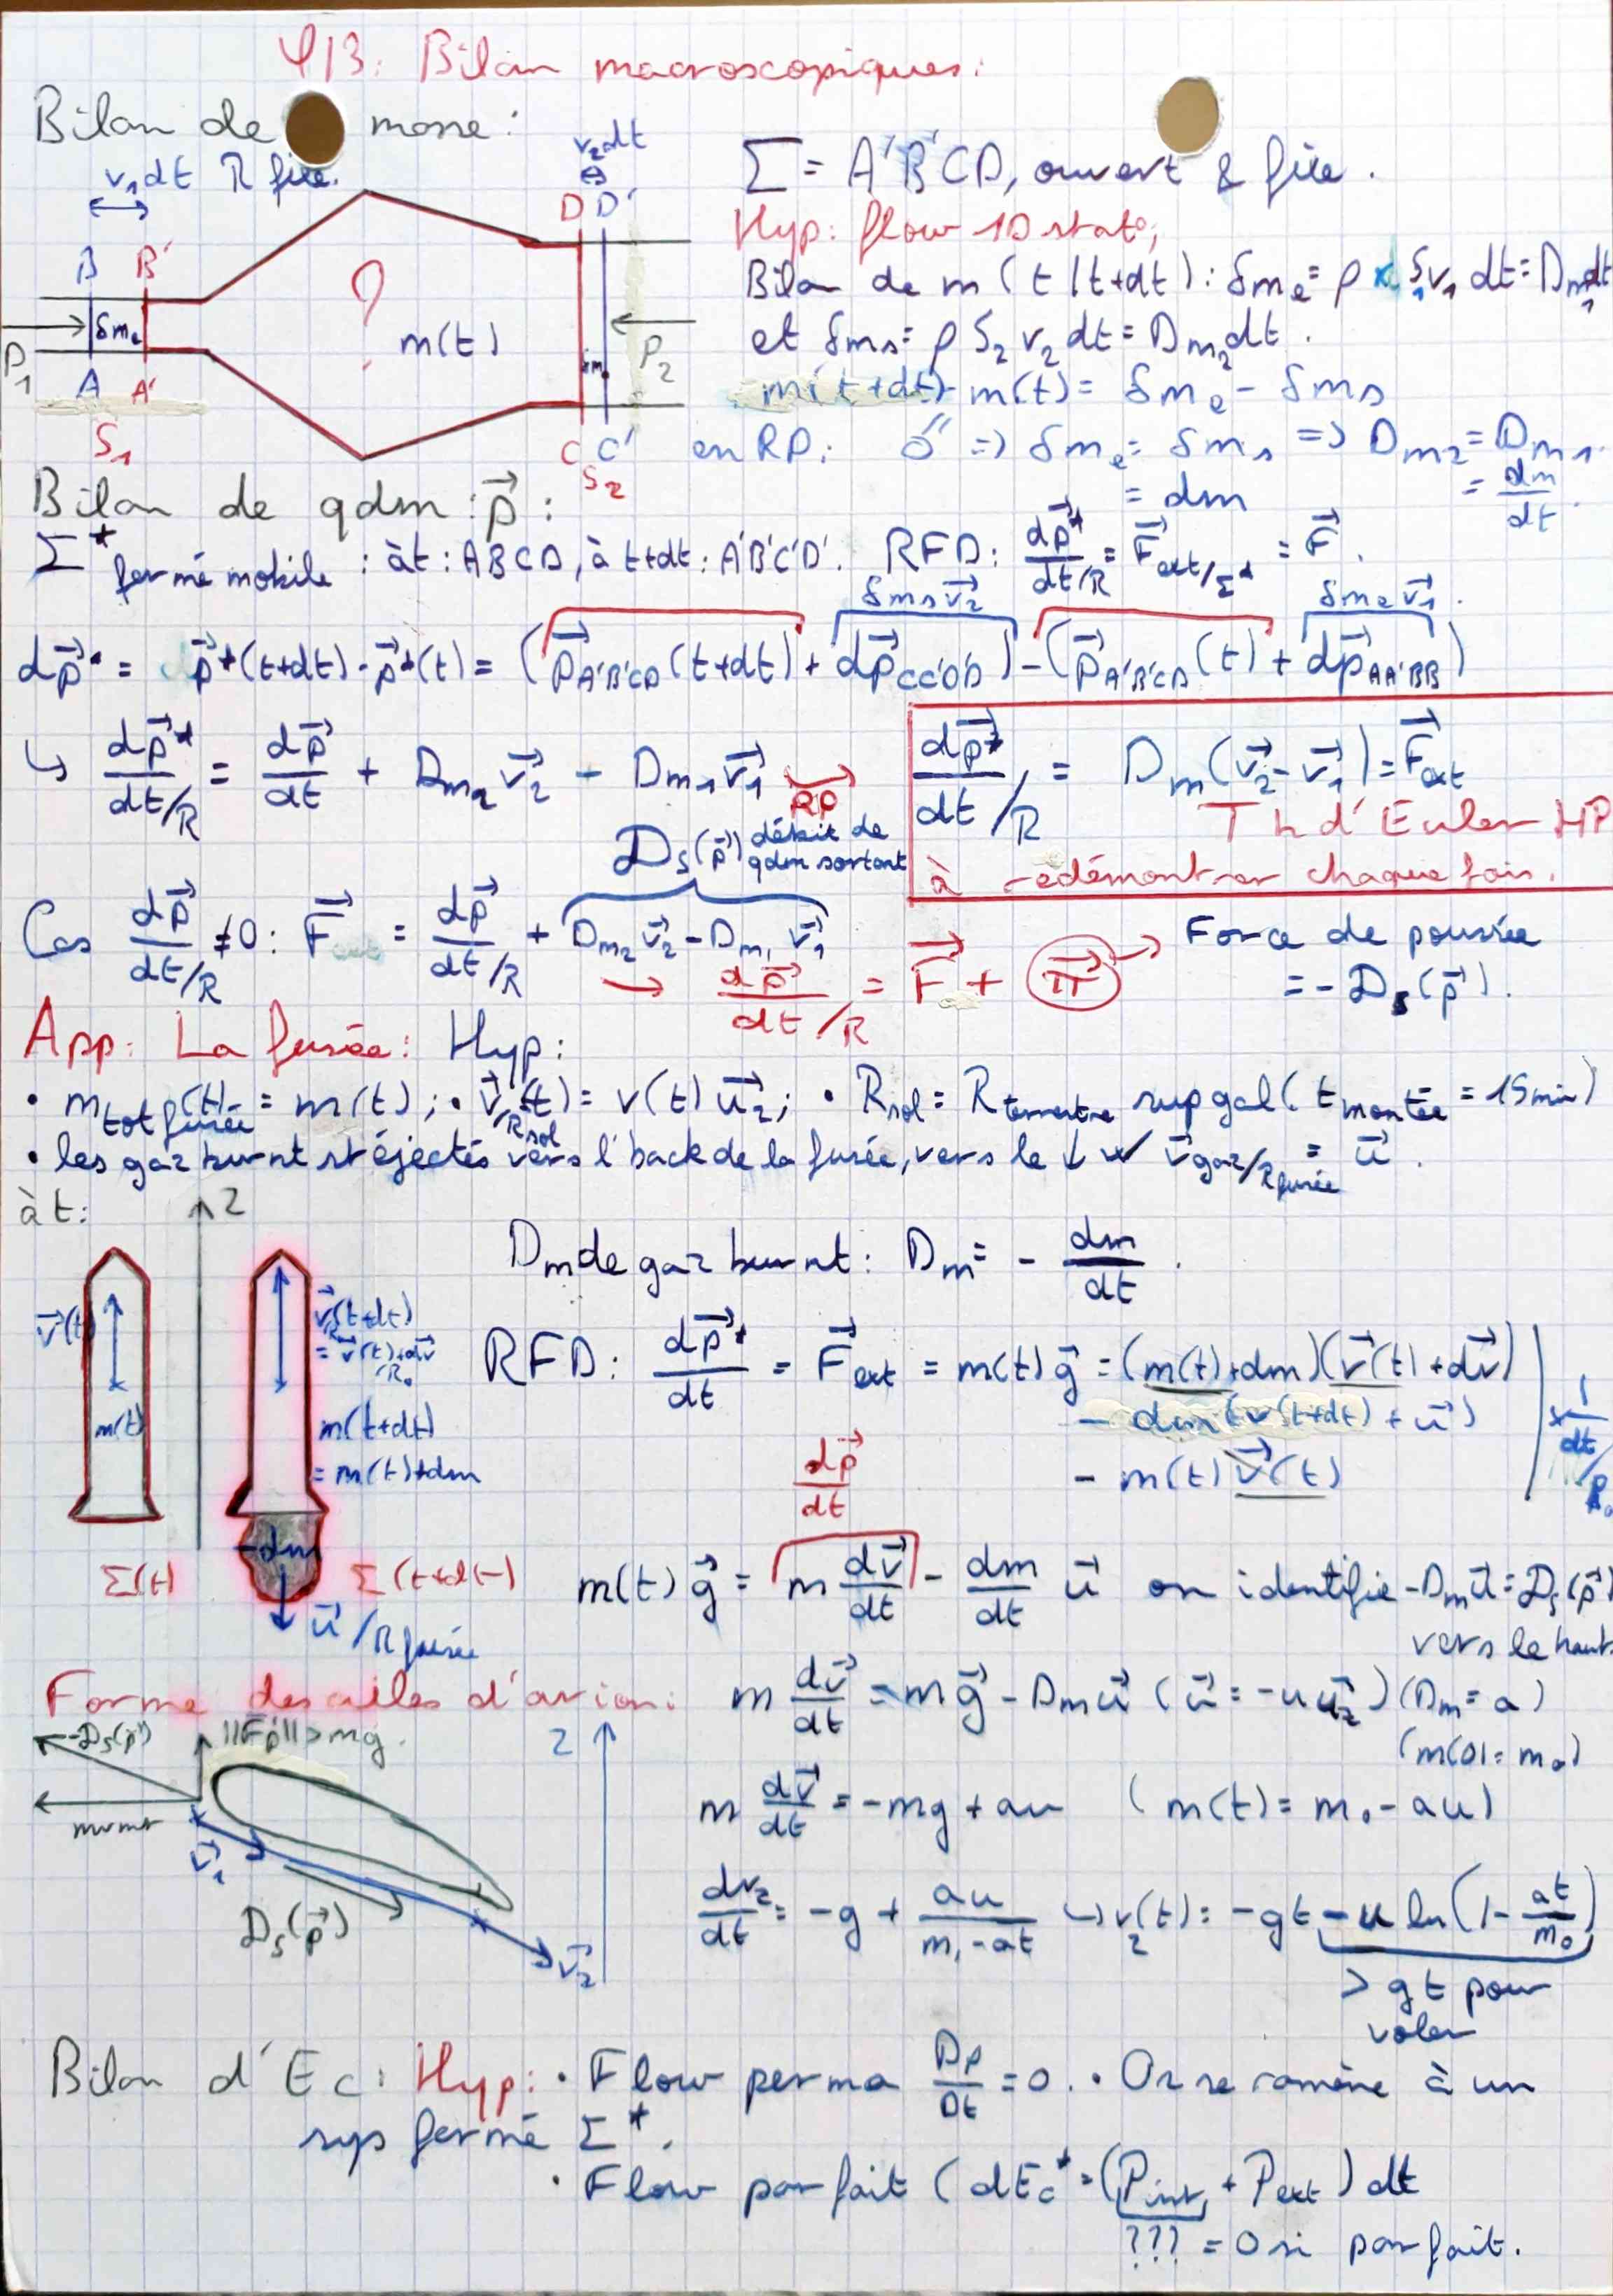 φ13: Bilan macroscopiques:
Bilan de masse :
v₁dt R fixe.
v₂dt
D D'
B B'
δmₑ
?
m(t)
δmₛ
P₁
P₂
A A'
S₁
C C'
S₂
Σ = A'B'CD, ouvert & fixe.
Hyp: flow 1D stat°,
Bilan de m (t/t+dt): δmₑ = ρ S₁v₁ dt = Dm₁dt
et δmₛ = ρ S₂ v₂ dt = Dm₂dt.
m(t+dt) - m(t) = δmₑ - δmₛ
en RP: 0'' => δmₑ = δmₛ => Dm₂ = Dm₁.
= dm = dm/dt.
Bilan de qdm : p⃗ :
Σ* fermé mobile : à t : ABCD, à t+dt : A'B'C'D'. RFD: dp⃗*/dt/R = F⃗ext/Σ* = F⃗.
δmₛv⃗₂ δmₑv⃗₁.
dp⃗* = p⃗*(t+dt) - p⃗*(t) = (p⃗A'B'CD(t+dt) + dp⃗CC'D'D) - (p⃗A'B'CD(t) + dp⃗AA'BB')
↳ dp⃗*/dt/R = dp⃗/dt + Dm₂v⃗₂ - Dm₁v⃗₁
RP
dp⃗*/dt/R = Dm(v⃗₂ - v⃗₁) = F⃗ext
Th d'Euler HP
à redémontrer chaque fois.
Dₛ(p⃗) débit de qdm sortant
Cas dp⃗/dt/R ≠ 0: F⃗ext = dp⃗/dt/R + Dm₂v⃗₂ - Dm₁v⃗₁
→ dp⃗/dt/R = F⃗ + π⃗ → Force de poussée
= - Dₛ(p⃗).
App: La fusée: Hyp:
• mtot fusée(t) = m(t); • v⃗/Rsol(t) = v(t) u⃗z; • Rsol = Rterrestre sup gal (tmontée = 15min)
• les gaz burnt st éjectés vers l'back de la fusée, vers le ↓ w/ v⃗gaz/Rfusée = u⃗.
à t:
z
v⃗(t)
m(t)
Σ(t)
v⃗(t+dt)
= v⃗(t)+dv⃗
m(t+dt)
= m(t)+dm
-dm
Σ(t+dt)
u⃗/R fusée
Dm de gaz burnt: Dm = - dm/dt.
RFD: dp⃗*/dt = F⃗ext = m(t)g⃗ = (m(t)+dm)(v⃗(t)+dv⃗)
- dm(v(t+dt) + u⃗)
- m(t)v⃗(t)
× 1/dt
dp⃗/dt
m(t)g⃗ = m dv⃗/dt - dm/dt u⃗ on identifie -Dmu⃗ = Dₛ(p⃗)
vers le haut.
m dv⃗/dt = mg⃗ - Dmu⃗ (u⃗ = -u u⃗z) (Dm = a)
(m(0) = m₀)
m dv⃗/dt = -mg + au (m(t) = m₀ - au)
dvz/dt = -g + au/(m₀-at) ↳ vz(t) = -gt - u ln(1 - at/m₀)
> gt pour voler
Forme des ailes d'avion:
-Dₛ(p⃗)
||F⃗p|| > mg.
z
mvmt
v⃗₁
Dₛ(p⃗)
v⃗₂
Bilan d'Ec: Hyp: • Flow perma Dρ/Dt = 0. • On se ramène à un
sys fermé Σ*.
• Flow parfait (dEc* = (Pint + Pext) dt
??? = 0 si parfait.